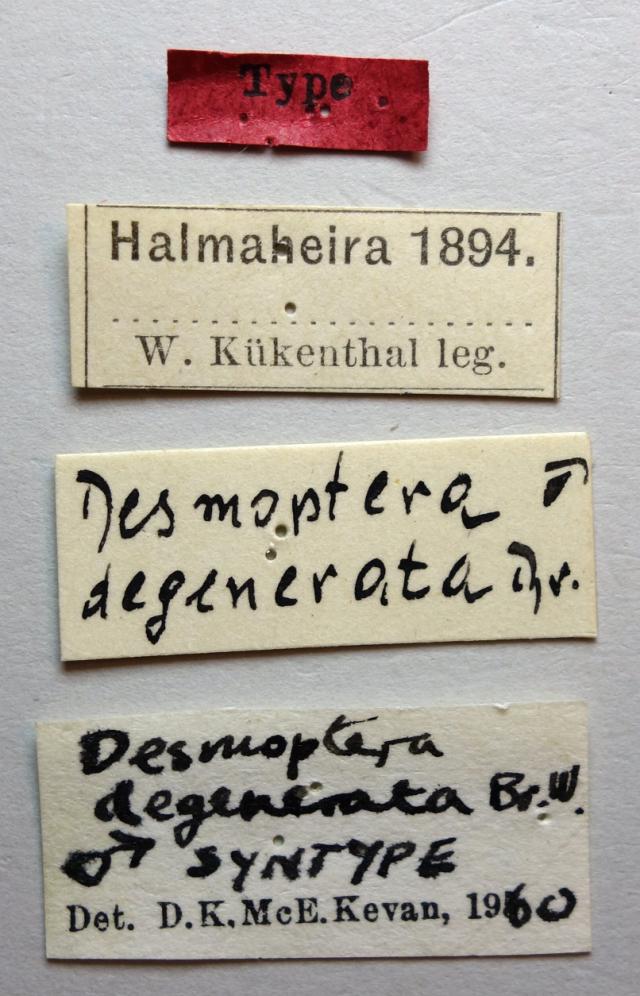 Type
Halmaheira 1894.
W. Kükenthal leg.
Desmoptera ♂
degenerata Br.
Desmoptera
degenerata Br. W.
♂ SYNTYPE
Det. D. K. McE. Kevan, 1960